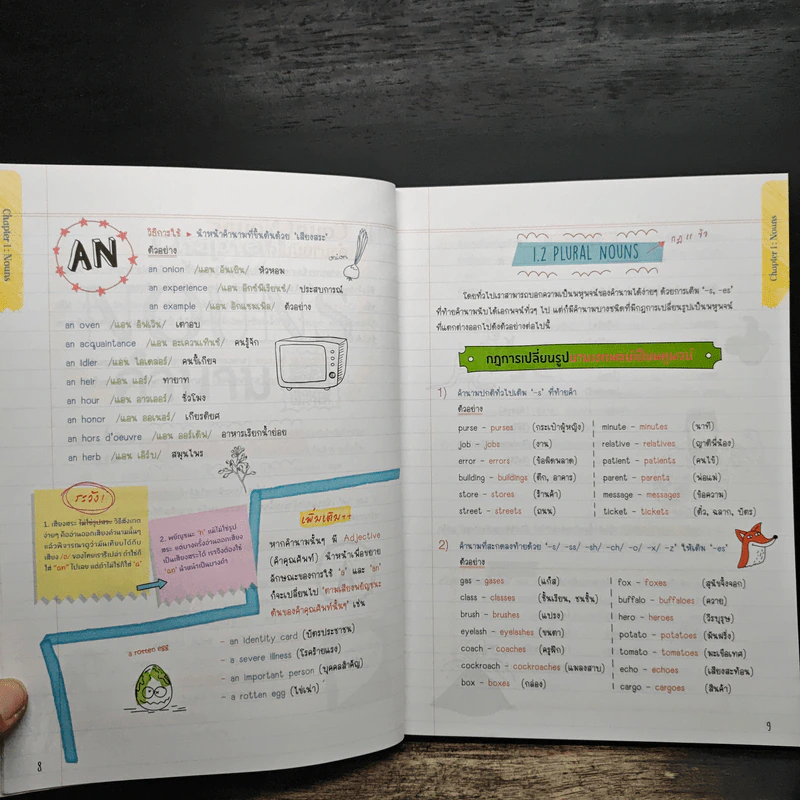 Chapter 1 : Nouns
AN
วิธีการใช้ ▸ นำหน้าคำนามที่ขึ้นต้นด้วย "เสียงสระ"
ตัวอย่าง
an onion /แอน อันเยิน/ หัวหอม
onion
an experience /แอน อิกซ์พีเรียนซ์/ ประสบการณ์
an example /แอน อิกแซมเพิล/ ตัวอย่าง
an oven /แอน อัฟเวิน/ เตาอบ
an acquaintance /แอน อะเควนเทินซ์/ คนรู้จัก
an idler /แอน ไอเดลอร์/ คนขี้เกียจ
an heir /แอน แอร์/ ทายาท
an hour /แอน อาวเออร์/ ชั่วโมง
an honor /แอน ออเนอร์/ เกียรติยศ
an hors d'oeuvre /แอน ออร์เดิฟ/ อาหารเรียกน้ำย่อย
an herb /แอน เอิร์บ/ สมุนไพร
ระวัง!
1. เสียงสระ ไม่ใช่รูปสระ วิธีสังเกต
ง่ายๆ คืออ่านออกเสียงคำนามนั้นๆ
แล้วพิจารณาดูว่ามันเทียบได้กับ
เสียง /อ/ ของไทยเราหรือเปล่า ถ้าใช่ก็
ใช้ "an" ไปเลย แต่ถ้าไม่ใช่ก็ใช้ "a"
2. พยัญชนะ "h" แม้ไม่ใช่รูป
สระ แต่บางครั้งอ่านออกเสียง
เป็นเสียงสระได้ เราจึงต้องใช้
"an" นำหน้าเป็นบางคำ
เพิ่มเติม++
หากคำนามนั้นๆ มี Adjective
(คำคุณศัพท์) นำหน้าเพื่อขยาย
ลักษณะของการใช้ "a" และ "an"
ก็จะเปลี่ยนไป "ตามเสียงพยัญชนะ
ต้นของคำคุณศัพท์นั้นๆ" เช่น
- an identity card (บัตรประชาชน)
- a severe illness (โรคร้ายแรง)
- an important person (บุคคลสำคัญ)
- a rotten egg (ไข่เน่า)
a rotten egg
8
Chapter 1 : Nouns
1.2 PLURAL NOUNS
โดยทั่วไปเราสามารถบอกความเป็นพหูพจน์ของคำนามได้ง่ายๆ ด้วยการเติม "-s, -es"
ที่ท้ายคำนามนับได้เอกพจน์ทั่วๆ ไป แต่ก็มีคำนามบางชนิดที่มีกฎการเปลี่ยนรูปเป็นพหูพจน์
ที่แตกต่างออกไปดังตัวอย่างต่อไปนี้
กฎการเปลี่ยนรูป
1) คำนามปกติทั่วไปเติม "-s" ที่ท้ายคำ
ตัวอย่าง
purse - purses (กระเป๋าผู้หญิง) minute - minutes (นาที)
job - jobs (งาน) relative - relatives (ญาติพี่น้อง)
error - errors (ข้อผิดพลาด) patient - patients (คนไข้)
building - buildings (ตึก, อาคาร) parent - parents (พ่อแม่)
store - stores (ร้านค้า) message - messages (ข้อความ)
street - streets (ถนน) ticket - tickets (ตั๋ว, ฉลาก, บัตร)
2) คำนามที่สะกดลงท้ายด้วย "-s/ -ss/ -sh/ -ch/ -o/ -x/ -z" ให้เติม "-es"
ตัวอย่าง
gas - gases (แก๊ส) fox - foxes (สุนัขจิ้งจอก)
class - classes (ชั้นเรียน, ชนชั้น) buffalo - buffaloes (ควาย)
brush - brushes (แปรง) hero - heroes (วีรบุรุษ)
eyelash - eyelashes (ขนตา) potato - potatoes (มันฝรั่ง)
coach - coaches (ครูฝึก) tomato - tomatoes (มะเขือเทศ)
cockroach - cockroaches (แมลงสาบ) echo - echoes (เสียงสะท้อน)
box - boxes (กล่อง) cargo - cargoes (สินค้า)
9